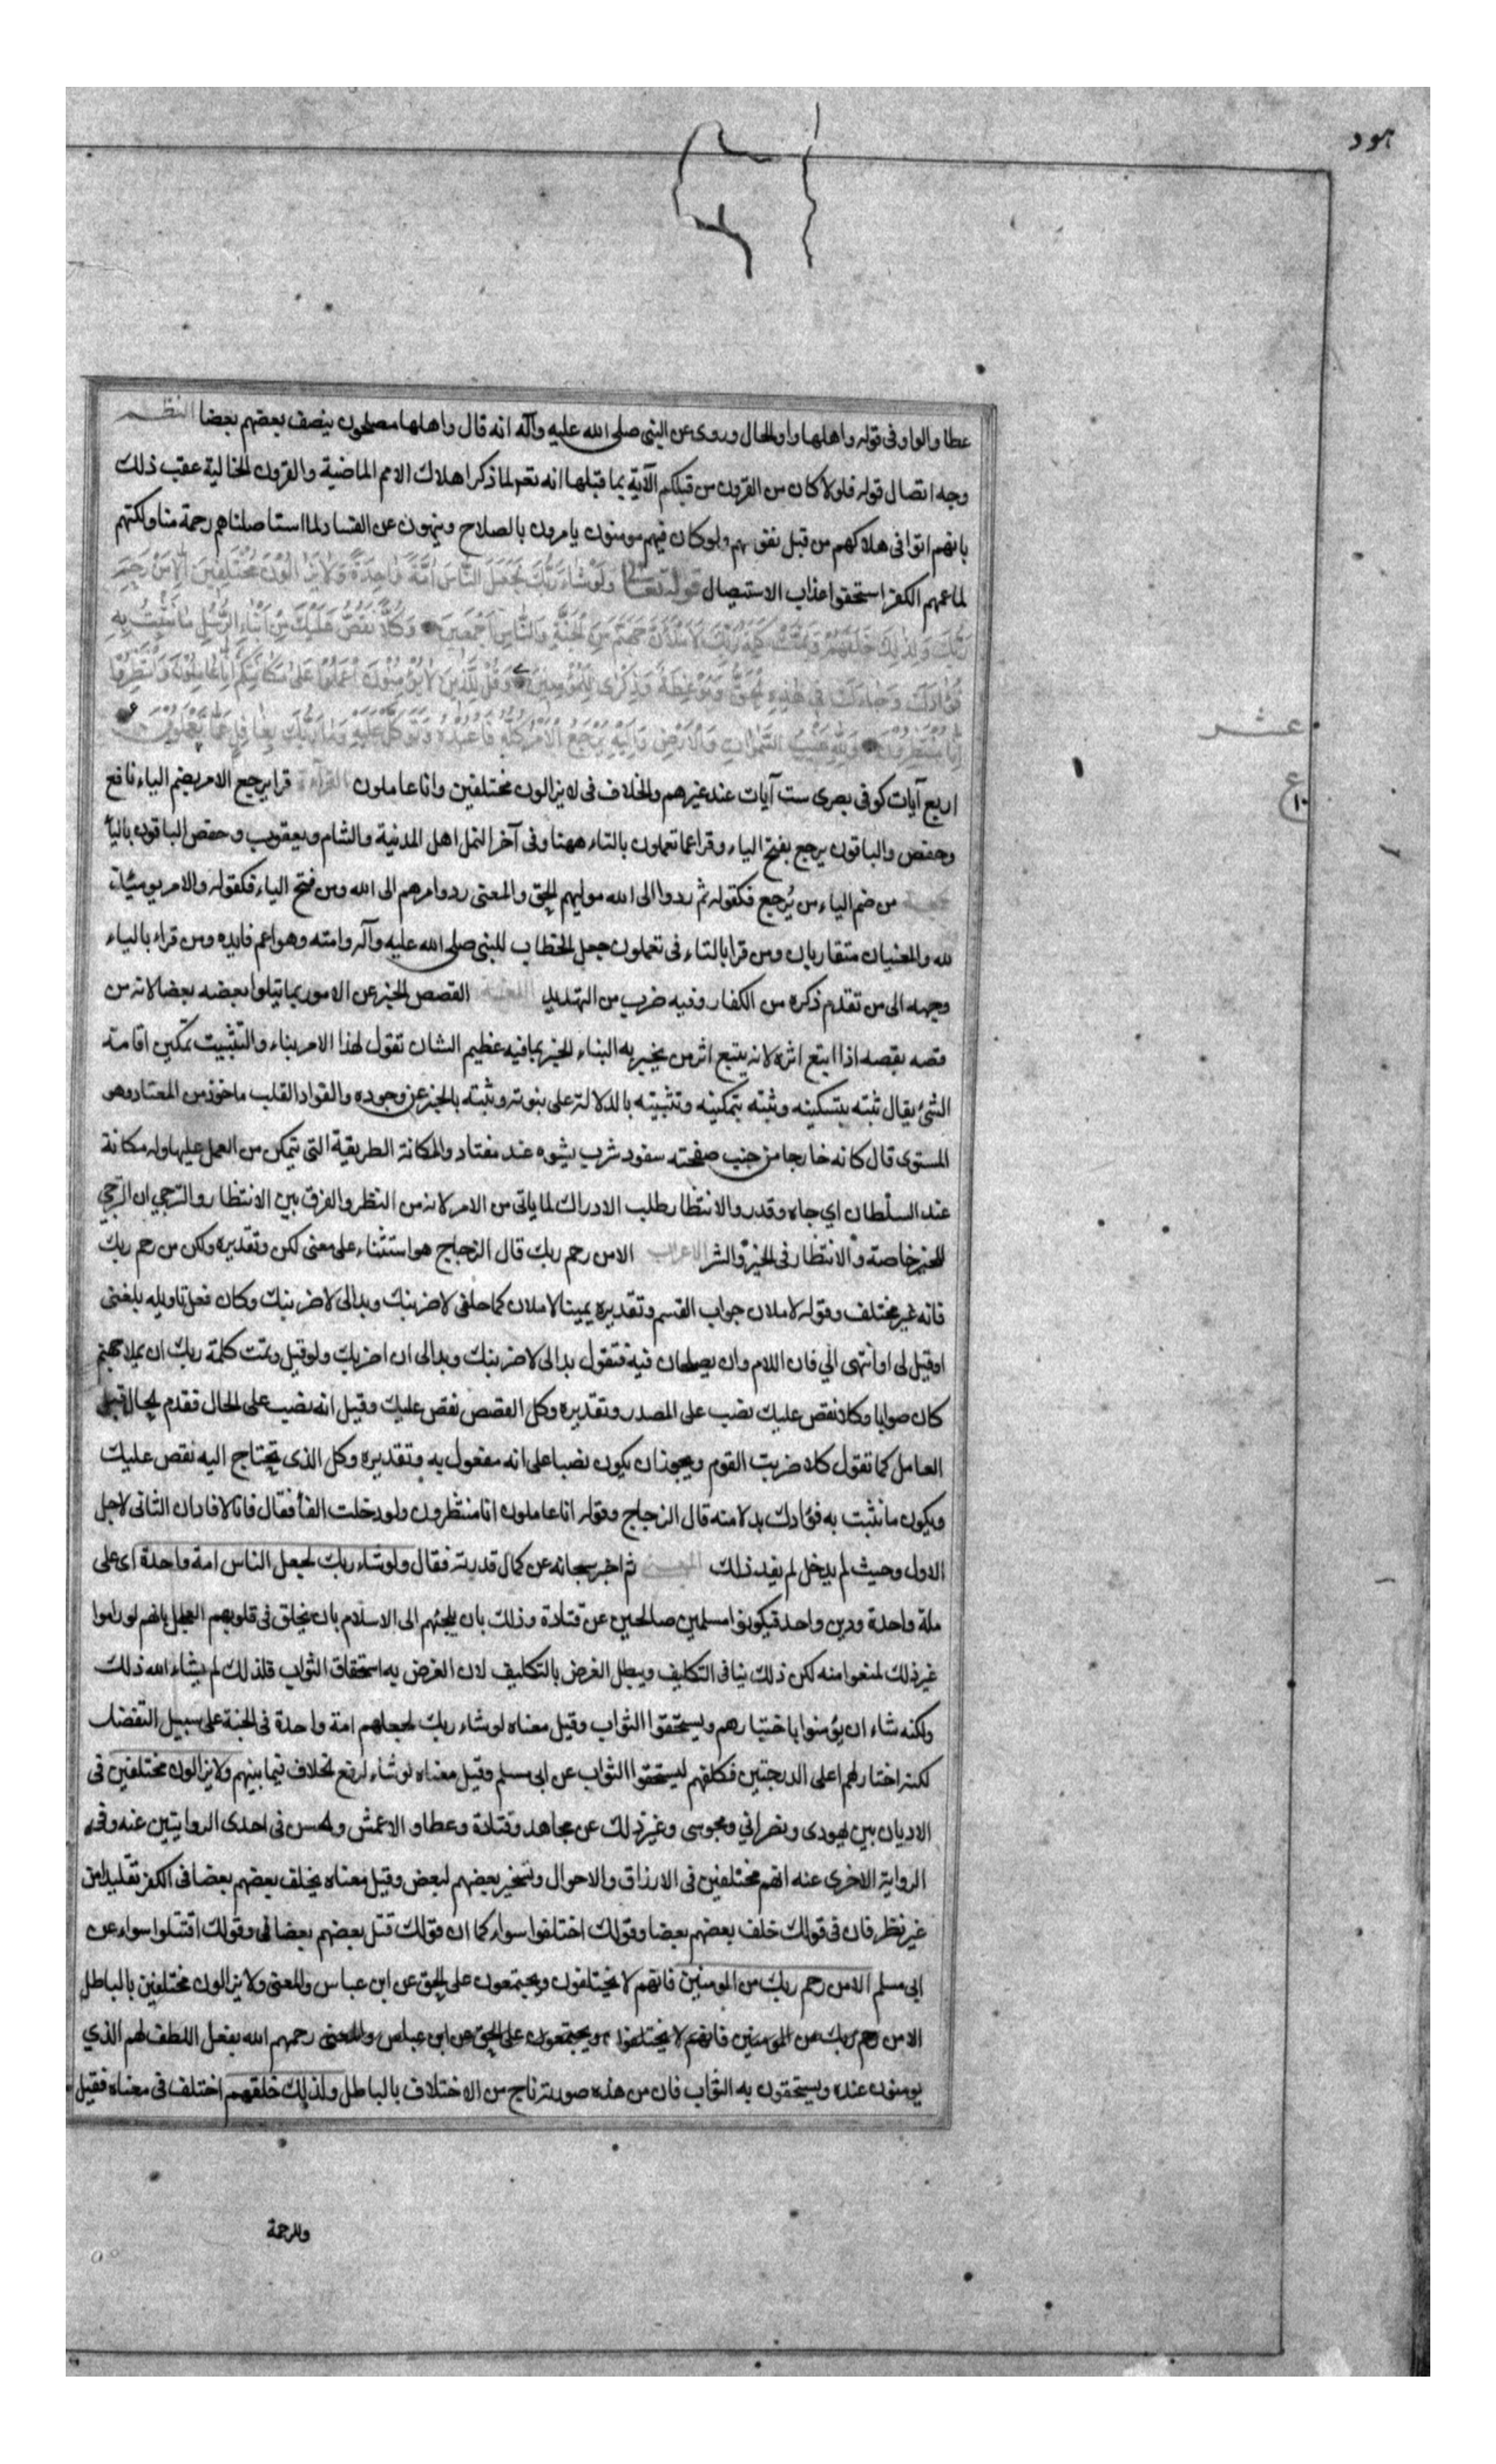 هود
عطا والواو فى قوله واهلها واو الحال وروى عن النبى صلى الله عليه وآله انه قال واهلها مصلحون ينصف بعضهم بعضا النظـــم
وجه اتصال قوله فلولا كان من القرون من قبلكم الآية بما قبلها انه تعر لما ذكر اهلاك الامم الماضية والقرون الخالية عقب ذلك
بانهم اتوا فى هلاكهم من قبل نفوسهم ولو كان فيهم مومنون يامرون بالصلاح وينهون عن الفساد لما استاصلناهم رحمة منا ولكنهم
لما عمهم الكفر استحقوا عذاب الاستيصال قوله تعالى وَلَوْ شَاءَ رَبُّكَ لَجَعَلَ النَّاسَ اُمَّةً وَاحِدَةً وَلَا يَزَالُوْنَ مُخْتَلِفِينَ اِلَّا مَنْ رَحِمَ
رَبُّكَ وَلِذٰلِكَ خَلَقَهُمْ وَتَمَّتْ كَلِمَةُ رَبِّكَ لَأَمْلَأَنَّ جَهَنَّمَ مِنَ الْجِنَّةِ وَالنَّاسِ اَجْمَعِينَ وَكُلًّا نَقُصُّ عَلَيْكَ مِنْ اَنْبَاءِ الرُّسُلِ مَا نُثَبِّتُ بِهِ
فُؤَادَكَ وَجَاءَكَ فِى هٰذِهِ الْحَقُّ وَمَوْعِظَةٌ وَذِكْرٰى لِلْمُؤْمِنِينَ وَقُلْ لِلَّذِينَ لَا يُؤْمِنُونَ اعْمَلُوْا عَلٰى مَكَانَتِكُمْ اِنَّا عَامِلُونَ وَانْتَظِرُوْا
اِنَّا مُنْتَظِرُونَ وَلِلّٰهِ غَيْبُ السَّمٰوَاتِ وَالْاَرْضِ وَاِلَيْهِ يُرْجَعُ الْاَمْرُ كُلُّهُ فَاعْبُدْهُ وَتَوَكَّلْ عَلَيْهِ وَمَا رَبُّكَ بِغَافِلٍ عَمَّا تَعْمَلُونَ
عشـــر
ع
١٠
اربع آيات كوفى بصرى ست آيات عند غيرهم والخلاف فى لا يزالون مختلفين وانا عاملون القرآءة قرا يرجع الامر بضم الياء نافع
وحفص والباقون يرجع بفتح الياء وقرا عما تعملون بالتاء ههنا وفى آخر النمل اهل المدنية والشام ويعقوب وحفص الباقون باليأ
من ضم الياء من يُرجع فكقوله ثم ردوا الى الله موليهم الحق والمعنى رد وامرهم الى الله ومن فتح الياء فكقوله والامر يومئذ
لله والمعنيان متقاربان ومن قرا بالتاء فى تعملون جعل الخطاب للنبى صلى الله عليه وآله وامته وهو اعم فايده ومن قراء بالياء
وجهه الى من تقدم ذكره من الكفار وفيه ضرب من التهديد اللغـــة القصص الخبر عن الامور بما يتلوا بعضه بعضا لانه من
قصه يقصه اذا اتبع اثره لانه يتبع اثر من يخبر به النباء الخبر بما فيه عظيم الشان تقول لهذا الامر نباء والتثبيت تمكين اقامة
الشئ يقال ثبته بتسكينه وثبته بتمكينه وتثبيته بالدلالة على نبوته وثبته بالخبر عن وجوده والفواد القلب ماخوذ من المفتاد وهو
المستوى قال كانه خارجا من جنب صفحته سفود شرب يشوه عند مفتاد والمكانة الطريقة التى يتمكن من العمل عليها وله مكانة
عند السلطان اى جاه وقدر والانتظار طلب الادراك لما ياتى من الامر لانه من النظر والفرق بين الانتظار والترجى ان الترجى
للخير خاصة والانتظار فى الخير والشر الاعراب الا من رحم ربك قال الزجاج هو استثناء على معنى لكن وتقديره ولكن من رحم ربك
فانه غير مختلف وقوله لاملان جواب القسم وتقديره يمينا لاملان كما حلفى لاضربنك وبدا لى لاضربنك وكان فعل تاويله بلغنى
او قيل لى او انتهى الى فان اللام وان يصلحان فيه فتقول بدا لى لاضربنك وبدا لى ان اضربك ولو قيل وتمت كلمة ربك ان يملا جهنم
كان صوابا وكلا نقص عليك نصب على المصدر وتقديره وكل القصص نقص عليك وقيل انه نصب على الحال فقدم الحال قبل
العامل كما تقول كلا ضربت القوم ويجوز ان يكون نصبا على انه مفعول به وتقديره وكل الذى تحتاج اليه نقص عليك
ويكون ما نثبت به فؤادك بدلا منه قال الزجاج وقوله انا عاملون انا منتظرون ولو دخلت الفأ فقال فانا لافاد ان الثانى لاجل
الاول وحيث لم يدخل لم يفيد ذلك المعنـــى ثم اخبر سبحانه عن كمال قدرته فقال ولو شاء ربك لجعل الناس امة واحدة اى على
ملة واحدة ودين واحد فيكونوا مسلمين صالحين عن قتادة وذلك بان يلجئهم الى الاسلام بان يخلق فى قلوبهم العلم بانهم لو راموا
غير ذلك لمنعوا منه لكن ذلك ينافى التكليف ويبطل الغرض بالتكليف لان الغرض به استحقاق الثواب فلذلك لم يشاء الله ذلك
ولكنه شاء ان يؤمنوا باختيارهم ويستحقوا الثواب وقيل معناه لو شاء ربك لجعلهم امة واحدة فى الجنة على سبيل التفضل
لكنه اختار لهم اعلى الدرجتين فكلفهم ليستحقوا الثواب عن ابى مسلم وقيل معناه لو شاء لرفع الخلاف فيما بينهم ولا يزالون مختلفين فى
الاديان بين يهودى ونصرانى ومجوسى وغير ذلك عن مجاهد وقتادة وعطا والاعمش والحسن فى احدى الروايتين عنه وفى
الرواية الاخرى عنه انهم مختلفين فى الارزاق والاحوال وتسخير بعضهم لبعض وقيل معناه يخلف بعضهم بعضا فى الكفر تقليدا من
غير نظر فان فى قولك خلف بعضهم بعضا وقولك اختلفوا سواء كما ان قولك قتل بعضهم بعضا وقولك اقتتلوا سواء عن
ابى مسلم الا من رحم ربك من المومنين فانهم لا يختلفون ويجتمعون على الحق عن ابن عباس والمعنى ولا يزالون مختلفين بالباطل
الا من رحم ربك من المومنين فانهم لا يختلفوا ويجتمعون على الحق عن ابن عباس والمعنى رحمهم الله بفعل اللطف لهم الذي
يومنون عنده ويستحقون به الثواب فان من هذه صورته ناج من الاختلاف بالباطل ولذلك خلقهم اختلف فى معناه فقيل
وللرحمة